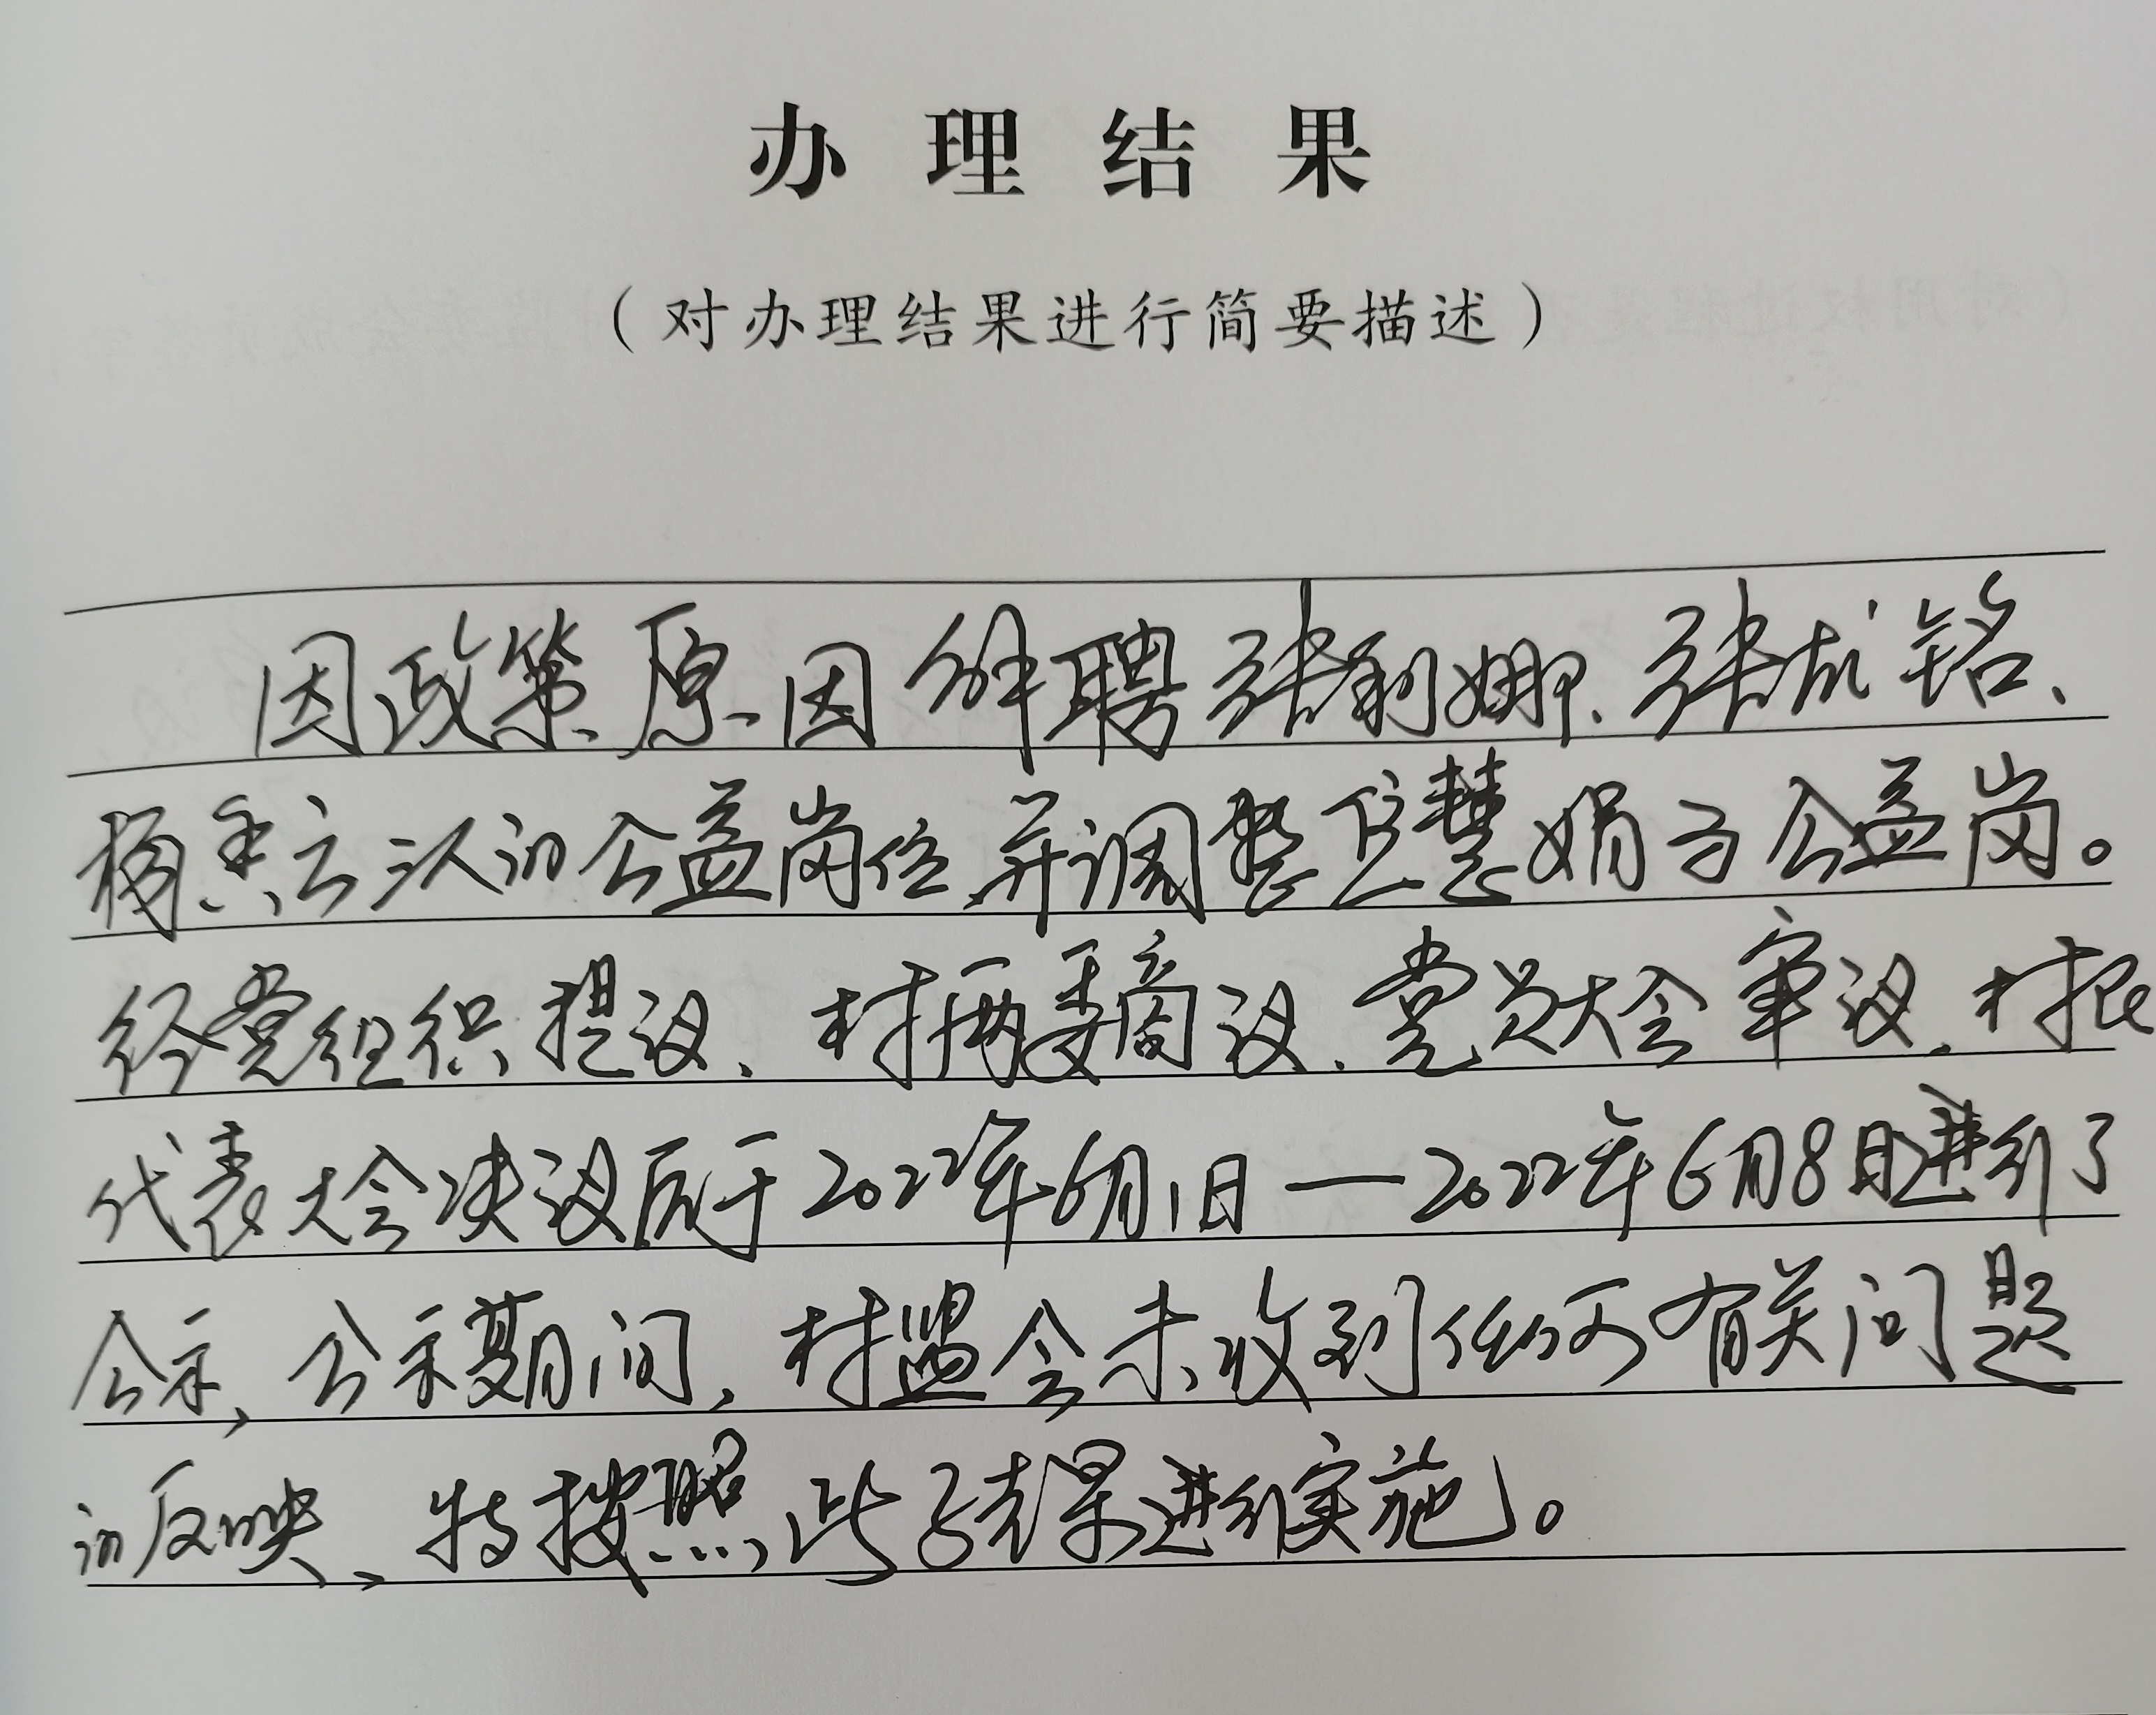 办理结果
（对办理结果进行简要描述）
因政策原因解聘张利娜、张成铭、
杨秀云认的公益岗位,并调整 慧娟为公益岗。
经党组织提议、村两委商议、党员大会审议、村民
代表大会决议后于2022年6月1日—2022年6月8日进行了
公示,公示期间,村监会未收到任何有关问题
的反映,特按照此结果进行实施。